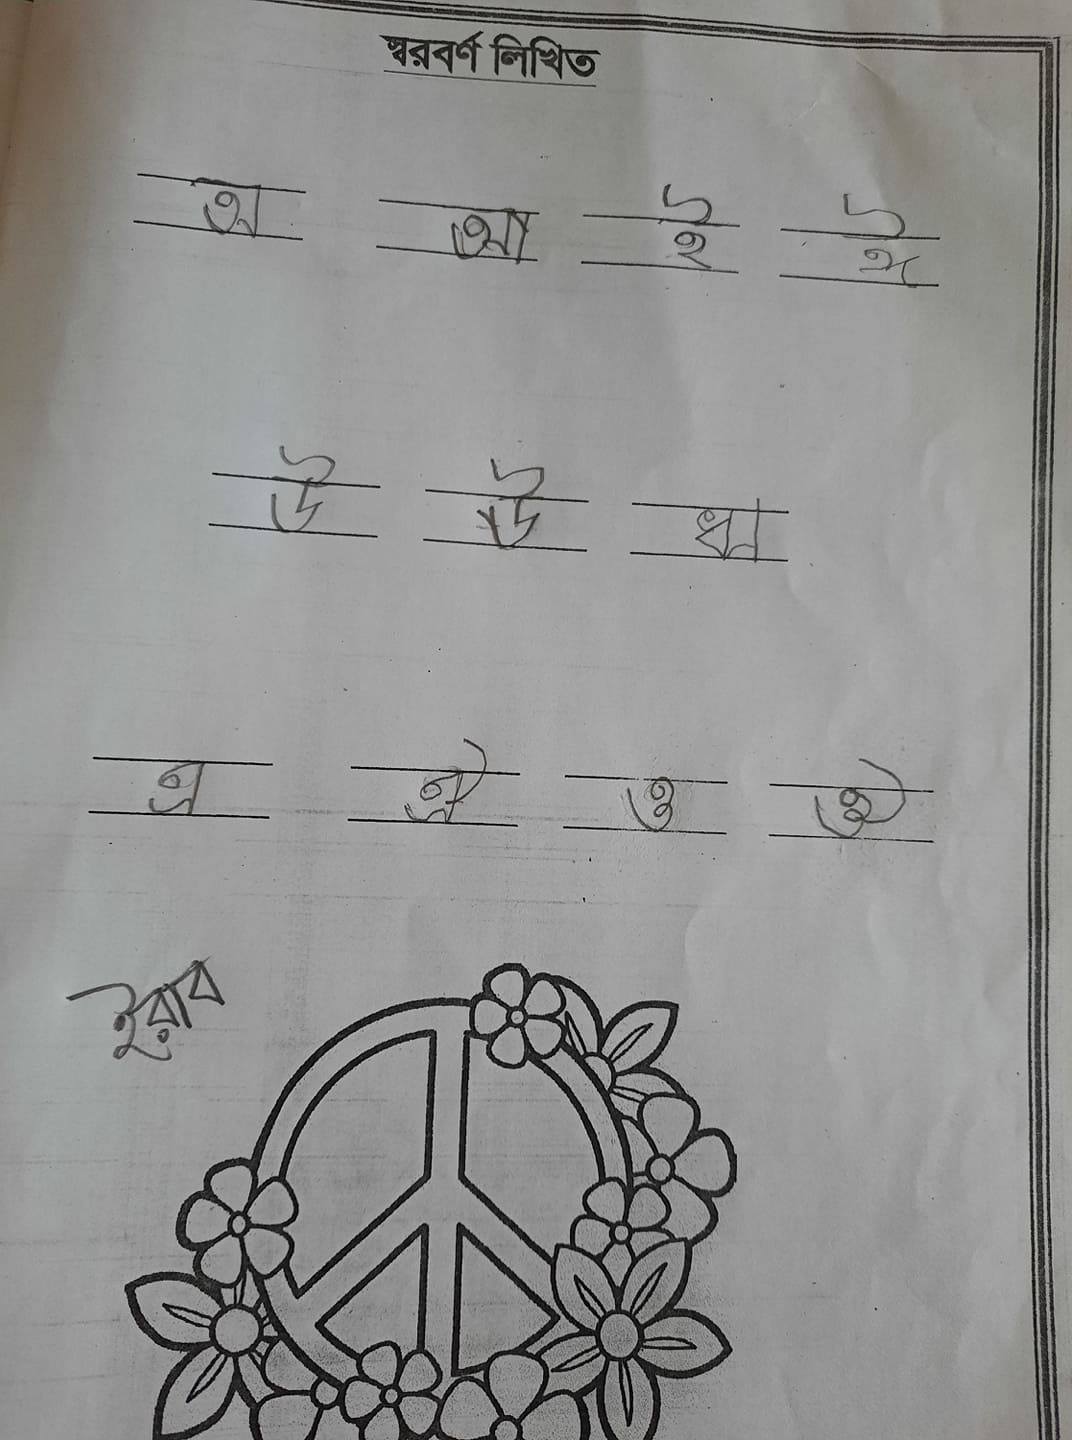 স্বরবর্ণ লিখিত
অ আ ই ঈ
উ ঊ ঋ
এ ঐ ও ঔ
ইরাব